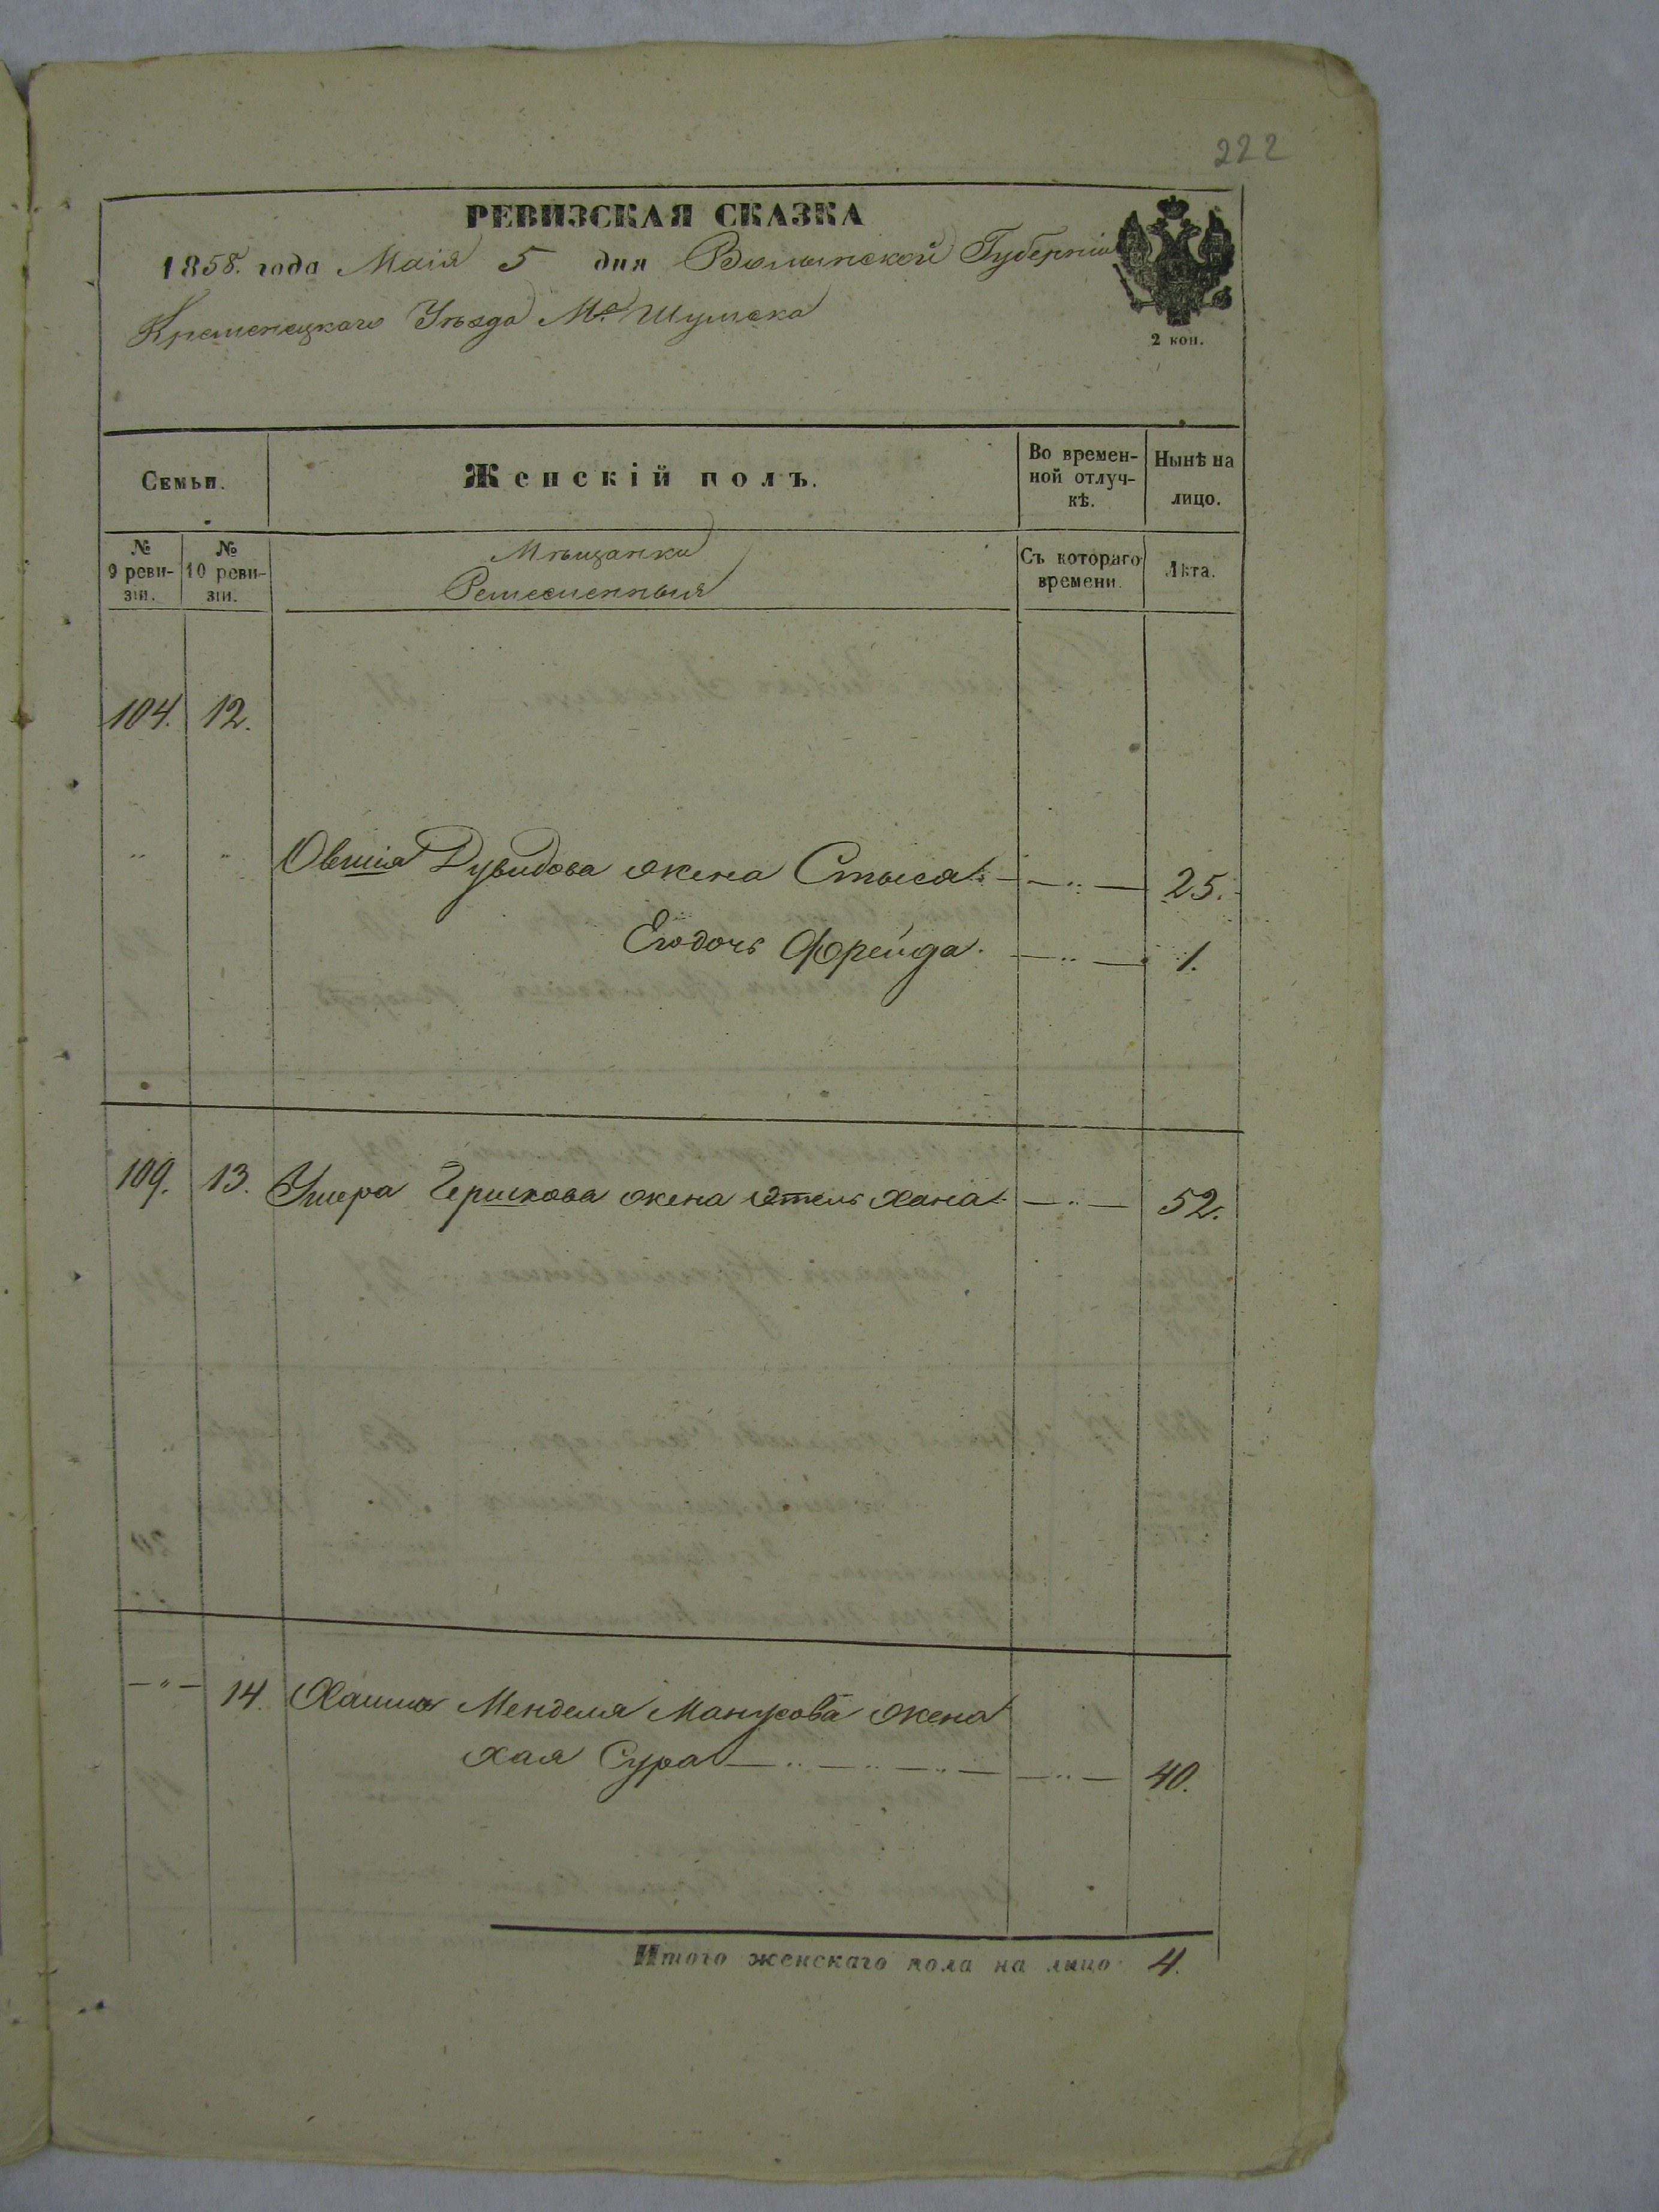 222
РЕВИЗСКАЯ СКАЗКА
1858. года Маія 5 дня Волынской Губерніи
Кременецкаго Уѣзда М. Шумска
2 коп.
Семьи. Женскій полъ. Во временной отлучкѣ. Нынѣ на лицо.
№ 9 ревизіи. № 10 ревизіи. Мѣщанки Ремесленныя Съ котораго времени. Лѣта.
104. 12.
" " Овшія Дувидова жена Стыся — " — 25.
Его дочь Фрейда. — " — 1.
109. 13. Ушера Гершкова жена Этель Хана — " — 52.
— " — 14. Хаима Менделя Манусова жена
Хая Сура — " — " — " — — " — 40.
Итого женскаго пола на лицо 4.